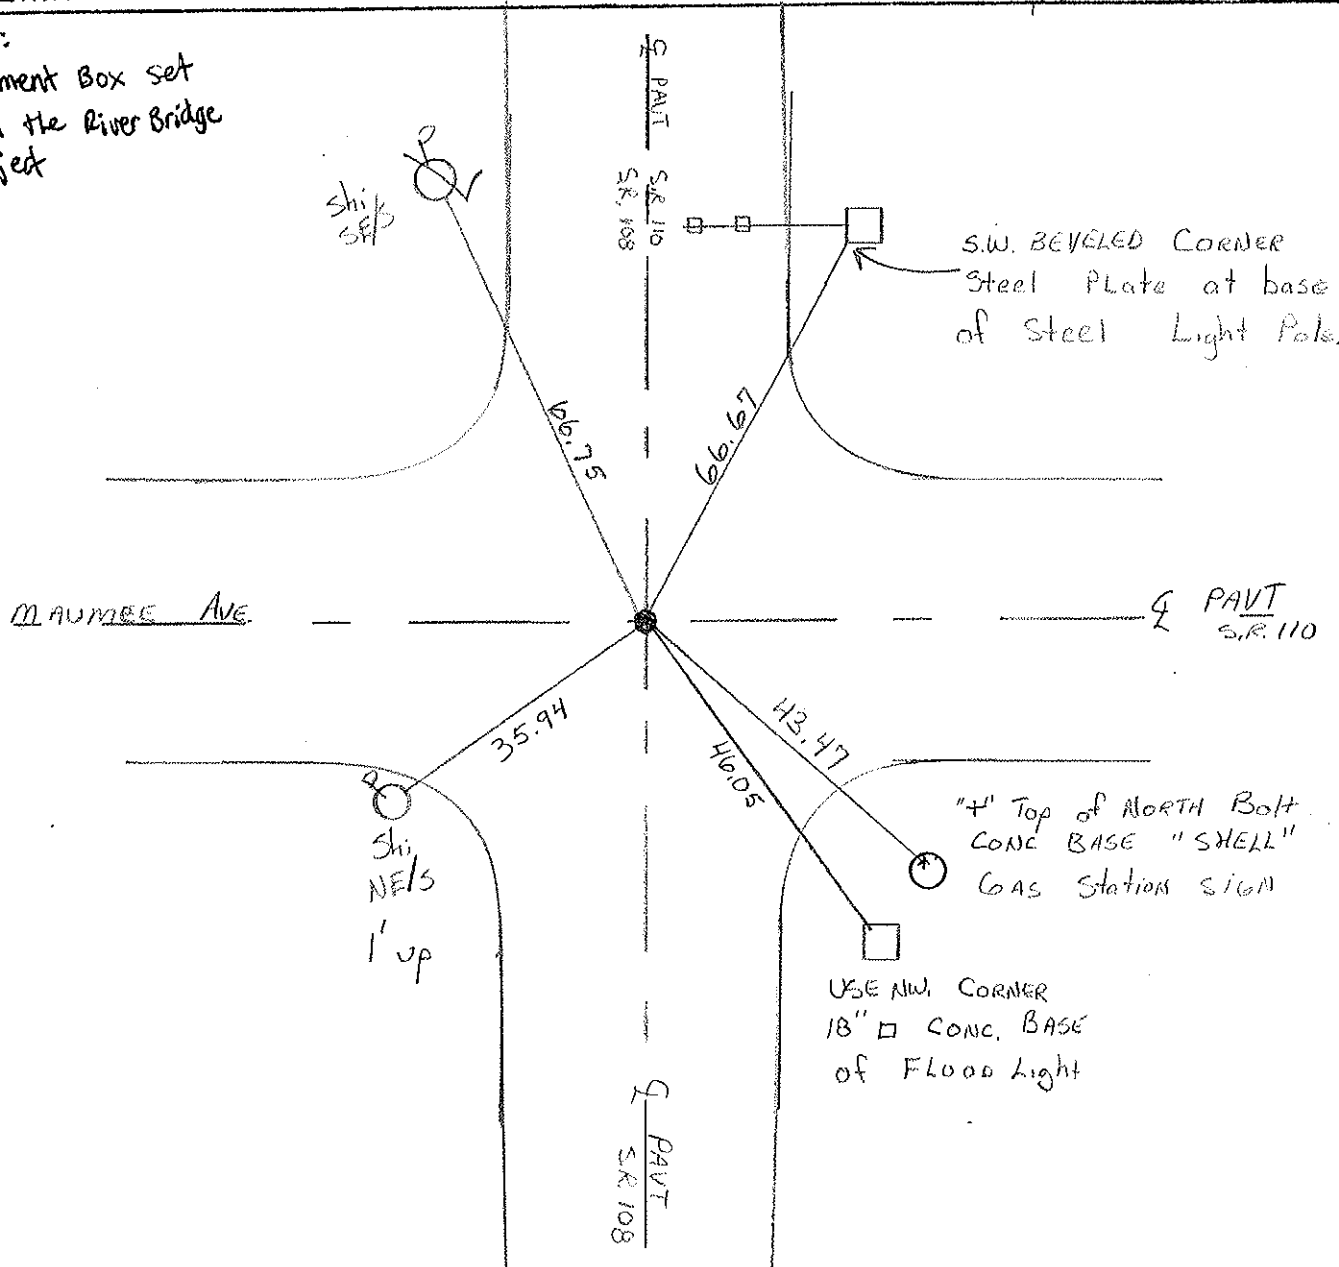 ment Box set
the River Bridge
ject
℄ PAVT
S.R. 110
S.R. 108
Shi
SE/S
S.W. BEVELED CORNER
Steel Plate at base
of Steel Light Pole.
66.75
66.67
MAUMEE AVE.
℄ PAVT
S.R. 110
35.94
43.47
46.05
Shi
NE/S
1' up
"+" Top of NORTH Bolt
CONC BASE "SHELL"
GAS Station SIGN
USE NW. CORNER
18" □ CONC. BASE
of FLOOD Light
℄ PAVT
S.R. 108